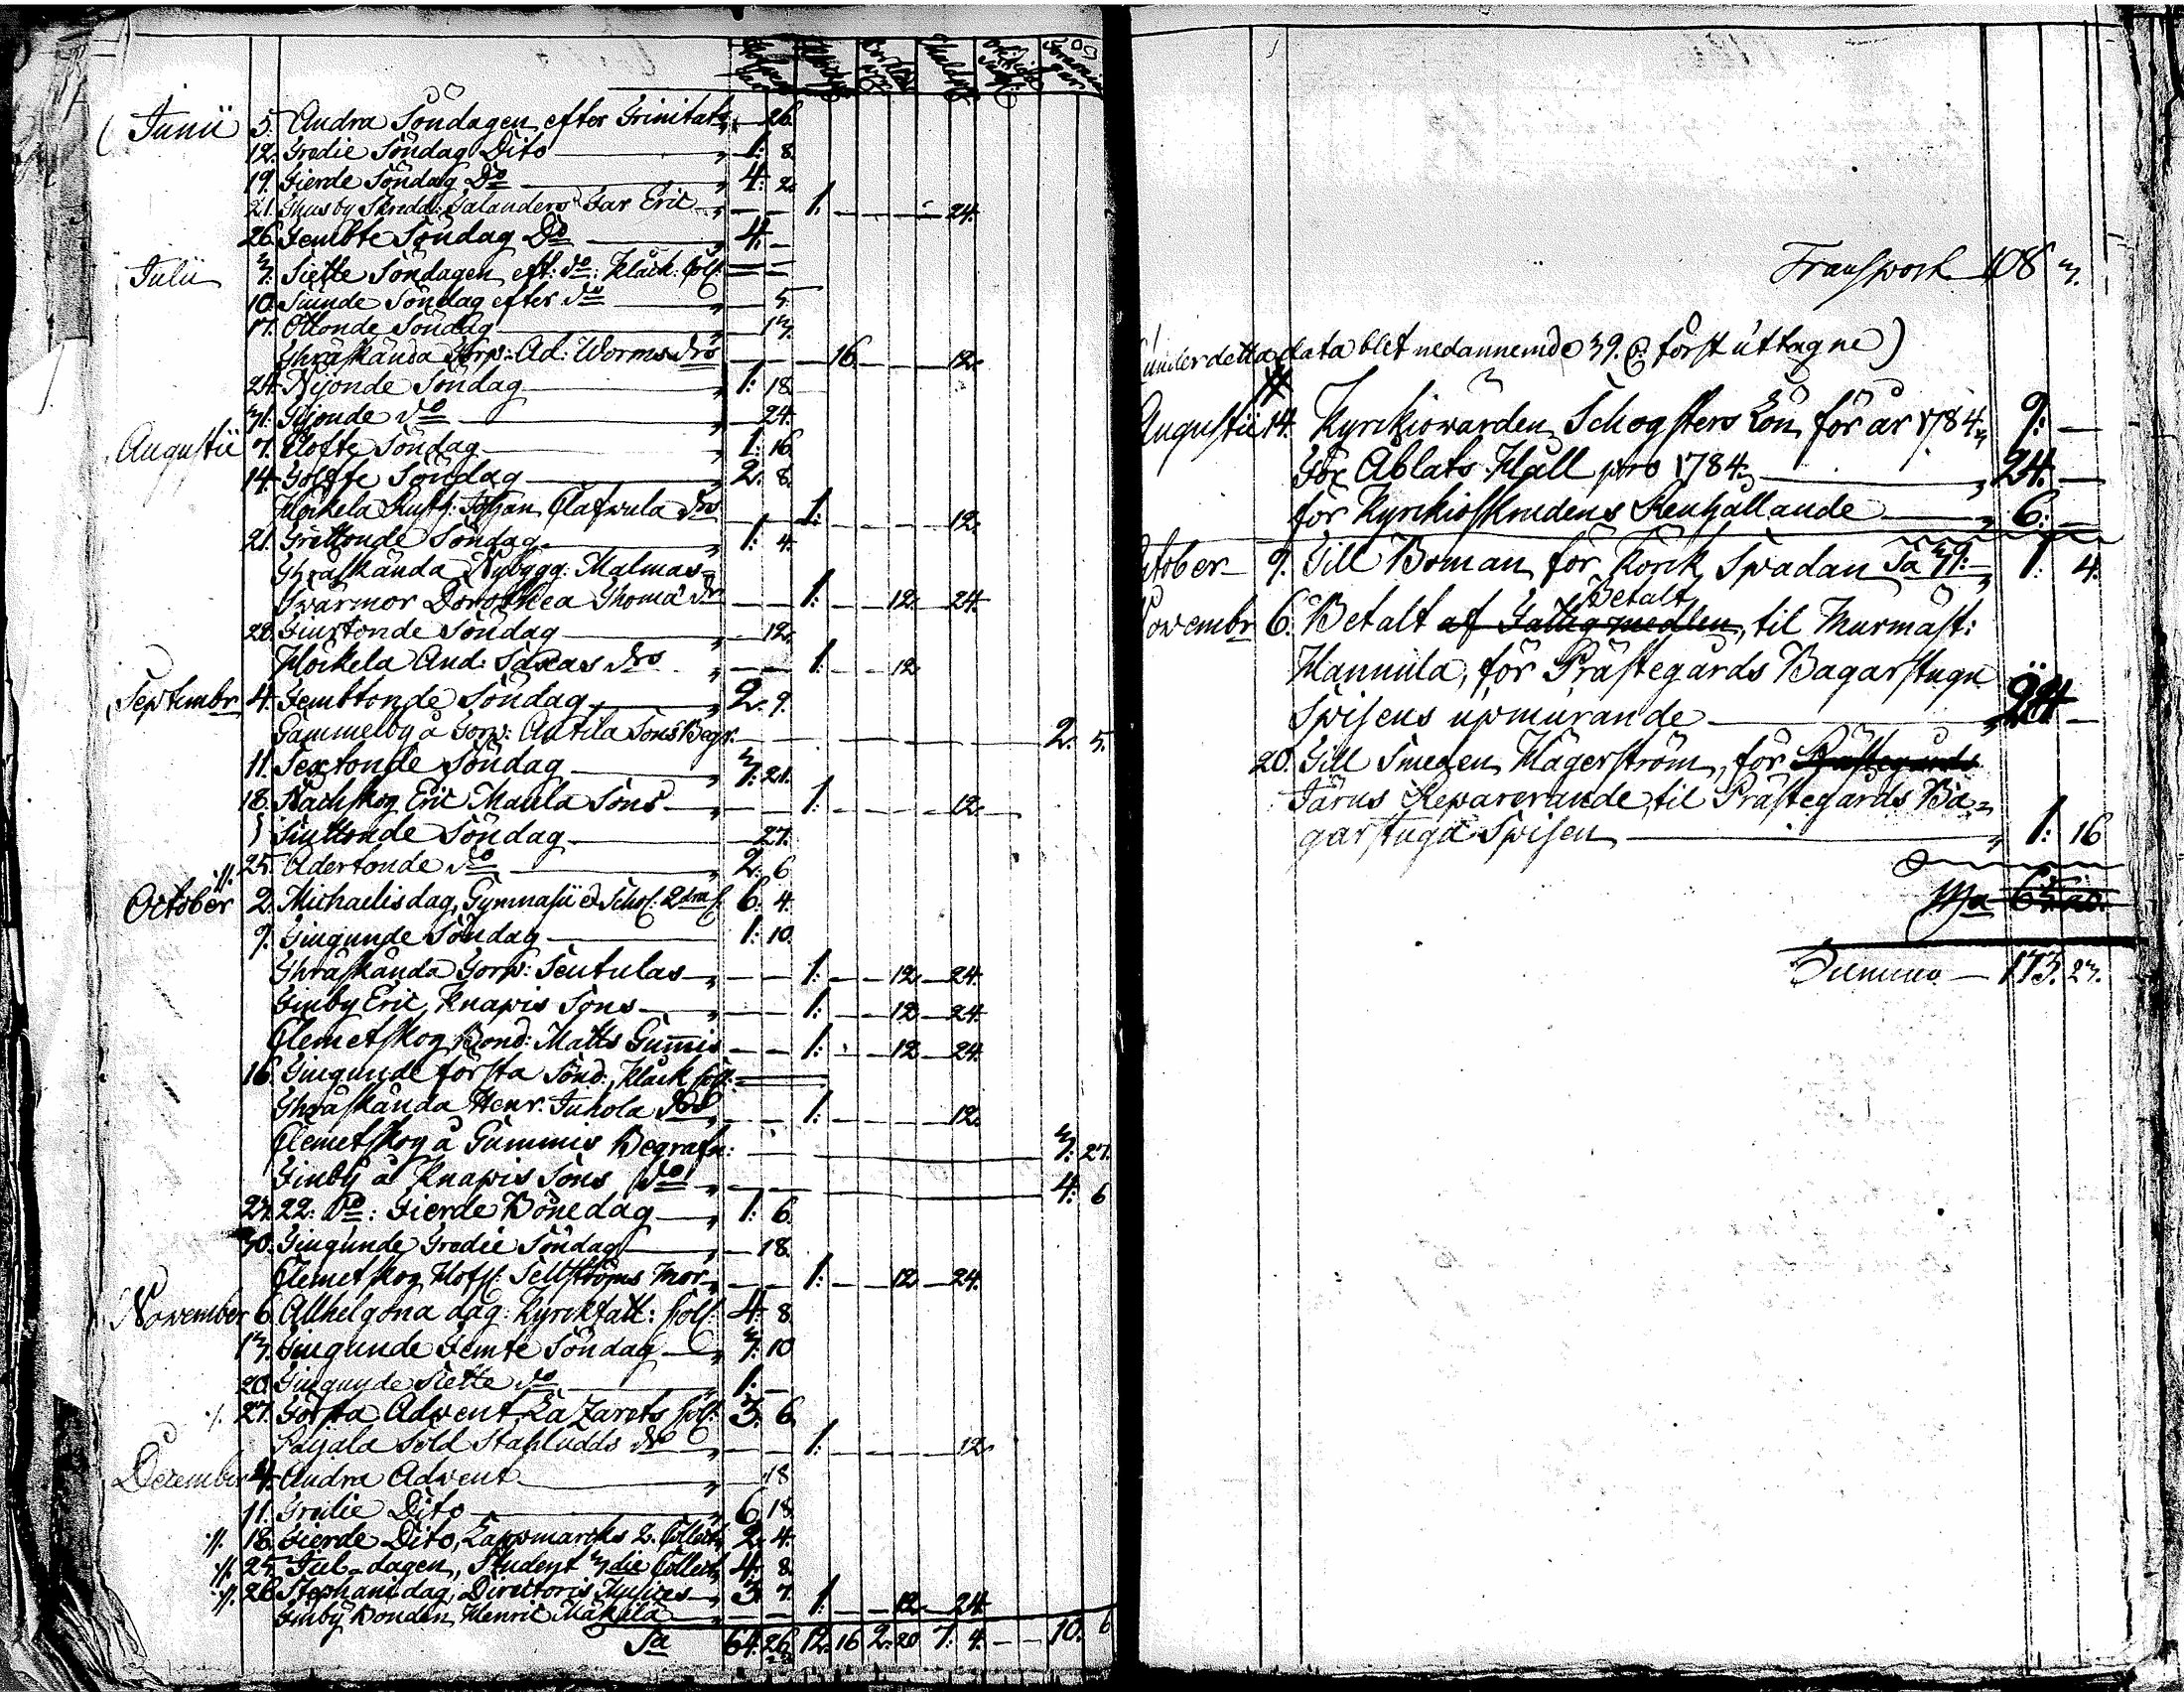 Junii 5. Andra Söndagen efter Trinitat: — 26.
12. Tredie Söndag Dito — 1: 8.
19. Fierde Söndag Do — 4: 2.
21. Skredd: Far Eric — — 1. — — — 24.
26. Fembte Söndag Do — 4: —
Julii 3. Siette Söndagen eft: do: Klåck: Coll: — —
10. Siunde Söndag efter do — 5.
17. Ottonde Söndag — 13.
Thråskända Torp: Ad: Worms drs — — — 16. — — — 12.
24. Nijonde Söndag — 1: 18.
31. Tijonde do — 24.
Augustii 7. Elofte Söndag — 1: 16.
14. Tolfte Söndag — 2. 8.
Klockela Rusth: Johan Clafwula drs — — 1: — — — 12.
21. Trettonde Söndag — 1: 4.
Thråskända Nybygg: Malmas
Swärmor Dorothea Thoma dr — — 1: — — 12. — 24.
28. Fiurtonde Söndag — 12.
Klockela And: Saxas drs — — 1: — — 12
Septembr 4. Fembtonde Söndag — 2. 9.
Gammelby å Torp: Antila Sons Begr: — 2. 5.
11. Sextonde Söndag — 3: 21.
18. Nackskog Eric Maula Sons — — 1: — — — 12.
Siuttonde Söndag — 27.
25. Adertonde do — 2. 6
October 2. Michaelis dag, Gymnasii et Schol: 2dra C. 6. 4.
9. Tiugunde Söndag — 1: 10.
Thråskända Torp: Sentulas — — — 1: — — 12. — 24.
Finby Eric Knapis Sons — — — 1: — — 12 — 24.
Clemetskog Bond: Matts Gummis — — 1: — — 12 — 24.
16. Tiugunde första Sönd: Klåck Coll: —
Thråskända Henr. Juhola drs — — 1: — — — 12.
Clemetskog å Gummis Begrafn: — 3: 27.
Finby å Knapis Sons do — 4: 6
23. 22: Do: Fierde Bönedag — 1: 6.
30. Tiugunde Tredie Söndag — 18.
Clemetskog Mor — — 1: — — 12 — 24.
November 6. Allhelgona dag: Kyrkfatt: Coll: 4: 8
13. Tiugunde Femte Söndag — 3: 10
20. Tiugunde Siette do — 1: —
27. Första Advent, Lazarets Coll: 3. 6.
Paijala Sold Stahludds dr — — 1: — — — 12.
December 4. Andra Advent — 18
11. Tredie Dito — 6. 18.
18. Fierde Dito, Lappmarcks 2. Collect, 2. 4.
25. Jul-dagen, Student 3die Collect, 4. 8.
26. Stephani dag, Directoris Musices — 3. 7.
Finby Bonden Henric Mäkilä — 1: — — 12 — 24.
Sa 64. 26 12. 16 2. 20 7. 4. — — 10. 6
Transport 108 3.
(under detta data blef nedannemde 39. först uttagne)
Augustii 14. Kyrckiowärden Schogsters Lön för år 1784 9: —
För Ablats Håll pro 1784 — 24. —
för Kyrckioskrudens Renhållande — 6: —
October 9. Till Boman för Körck Spadan Sa 39: 1: 4.
Betalt
Novembr 6. Betalt af Fattig medlen, til Murmäst:
Hannula, för Prästegårds Bagarstugu
Spisens upmurande — 24 —
20. Till Smeden Hägerström, för Prästegårds
Järns Reparerande, til Prästegårds Ba=
garstuga Spisen — 1: 16
Sa 65: 20.
Summa — 173. 23.